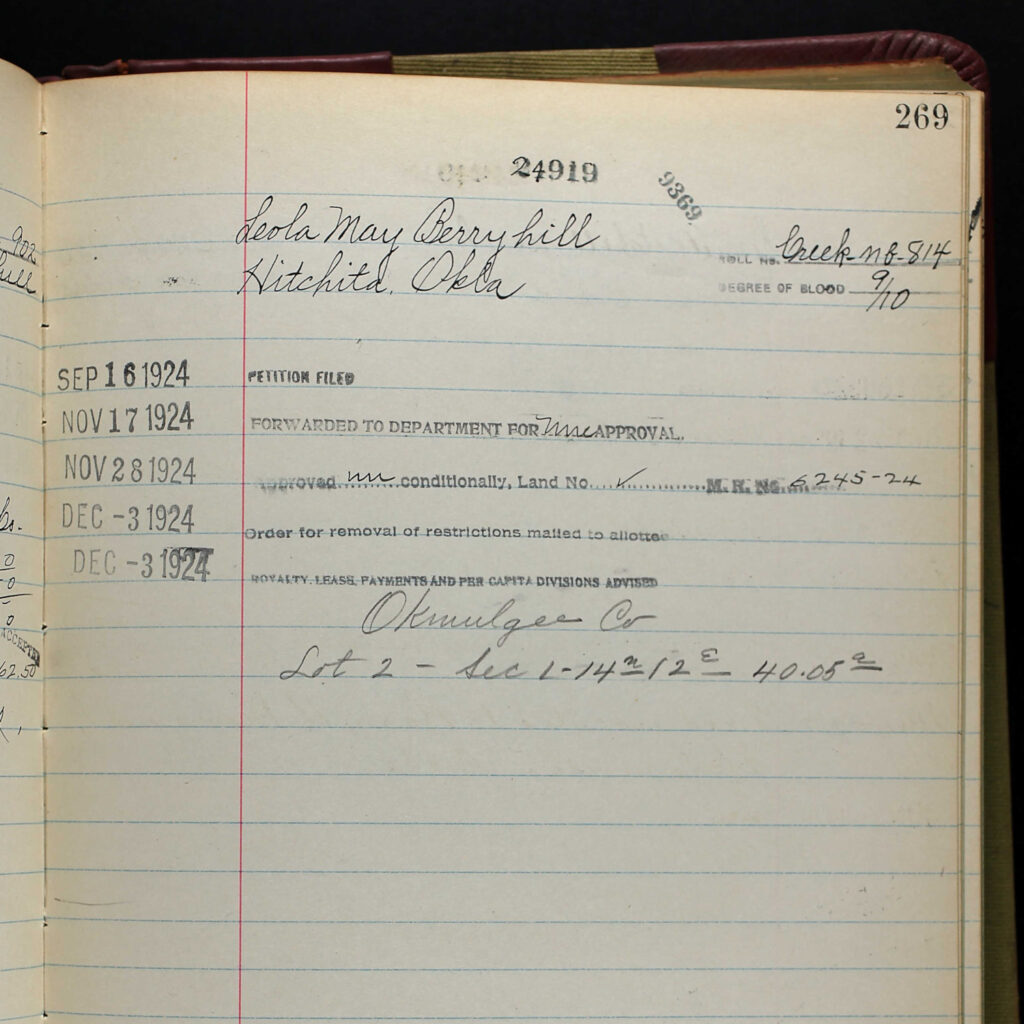 269
24919
9369
Leola May Berryhill
Hitchita. Okla
ROLL NO. Creek-nb-814
DEGREE OF BLOOD 9/10
SEP 16 1924 PETITION FILED
NOV 17 1924 FORWARDED TO DEPARTMENT FOR APPROVAL.
NOV 28 1924 Approved un conditionally, Land No. ✓ M. R. No. 6245-24
DEC -3 1924 Order for removal of restrictions mailed to allottee
DEC -3 1924 ROYALTY, LEASE, PAYMENTS AND PER CAPITA DIVISIONS ADVISED
Okmulgee Co
Lot 2 - Sec 1-14n 12E 40.05a
902
62.50
ACCEPTED